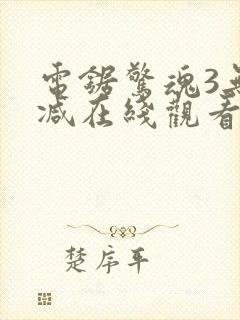 電鋸驚魂3無
減在綫觀看
楚序平